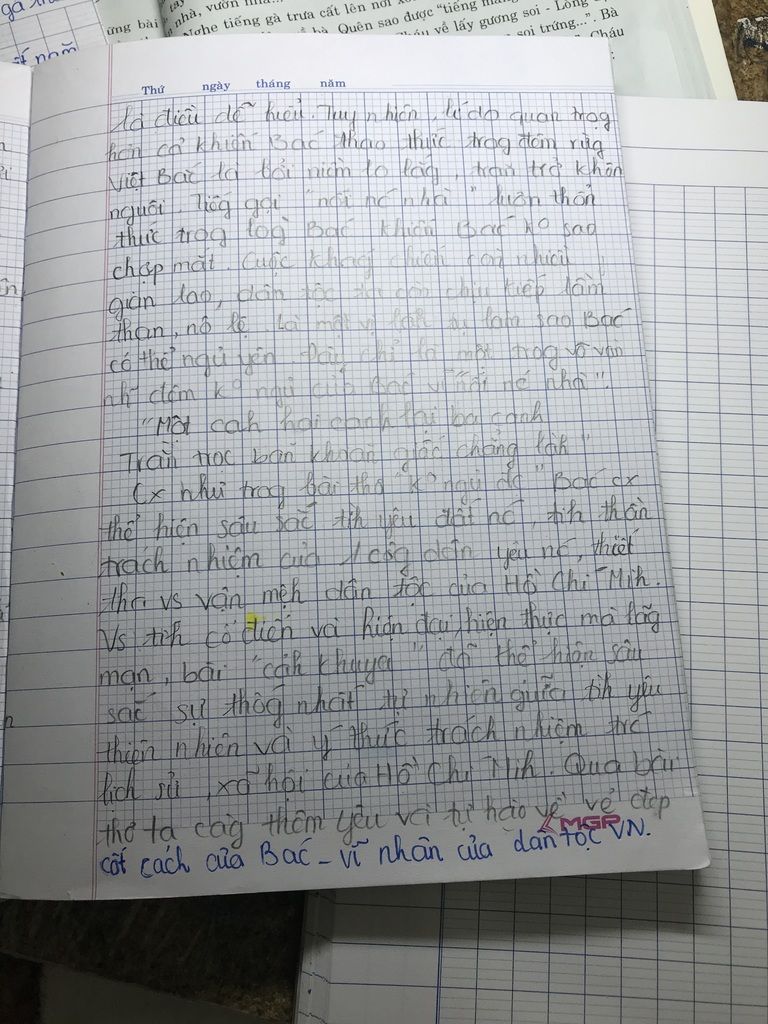 ứng bài
nhà, vườn nhà...
Nghe tiếng gà trưa cất lên nơi
bà. Quên sao được "tiếng
về lấy gương soi - Lòng
soi trứng...". Bà
Cháu
Thứ ngày tháng năm
là điều dễ hiểu. Tuy nhiên, lí do quan trọg
hơn cả khiến Bác thao thức trog đêm rừg
Việt Bắc là bởi niềm lo lắg, trăn trở khôn
nguôi. Tiếg gọi "nỗi nc nhà" luôn thổn
thức trog lòg Bác khiến Bác ko sao
chợp mắt. Cuộc khág chiến còn nhiều
gian lao, dân tộc ta còn chịu kiếp lầm
than, nô lệ. Là một vị làm sao Bác
có thể ngủ yên. Đây chỉ là một trog vô vàn
nhữ đêm ko ngủ của Bác vì "nỗi nc nhà".
"Một cah hai canh lại ba canh
Trằn trọc băn khoăn giấc chẳng làh"
Cx như trog bài thơ "ko ngủ đc" Bác cx
thể hiện sâu sắc tìh yêu đất nc, tih thần
trách nhiệm của 1 côg dân yêu nc, thiết
tha vs vận mệh dân tộc của Hồ Chí Mih.
Vs tíh cổ điển và hiện đại, hiện thực mà lãg
mạn, bài "cảh khuya" đã thể hiện sâu
sắc sự thốg nhất tự nhiên giữa tìh yêu
thiên nhiên và ý thức trách nhiệm trc
lịch sử, xã hội của Hồ Chí Mih. Qua bài
thơ ta càg thêm yêu và tự hào về vẻ đẹp
MGP
cốt cách của Bác - vĩ nhân của dân tộc VN.